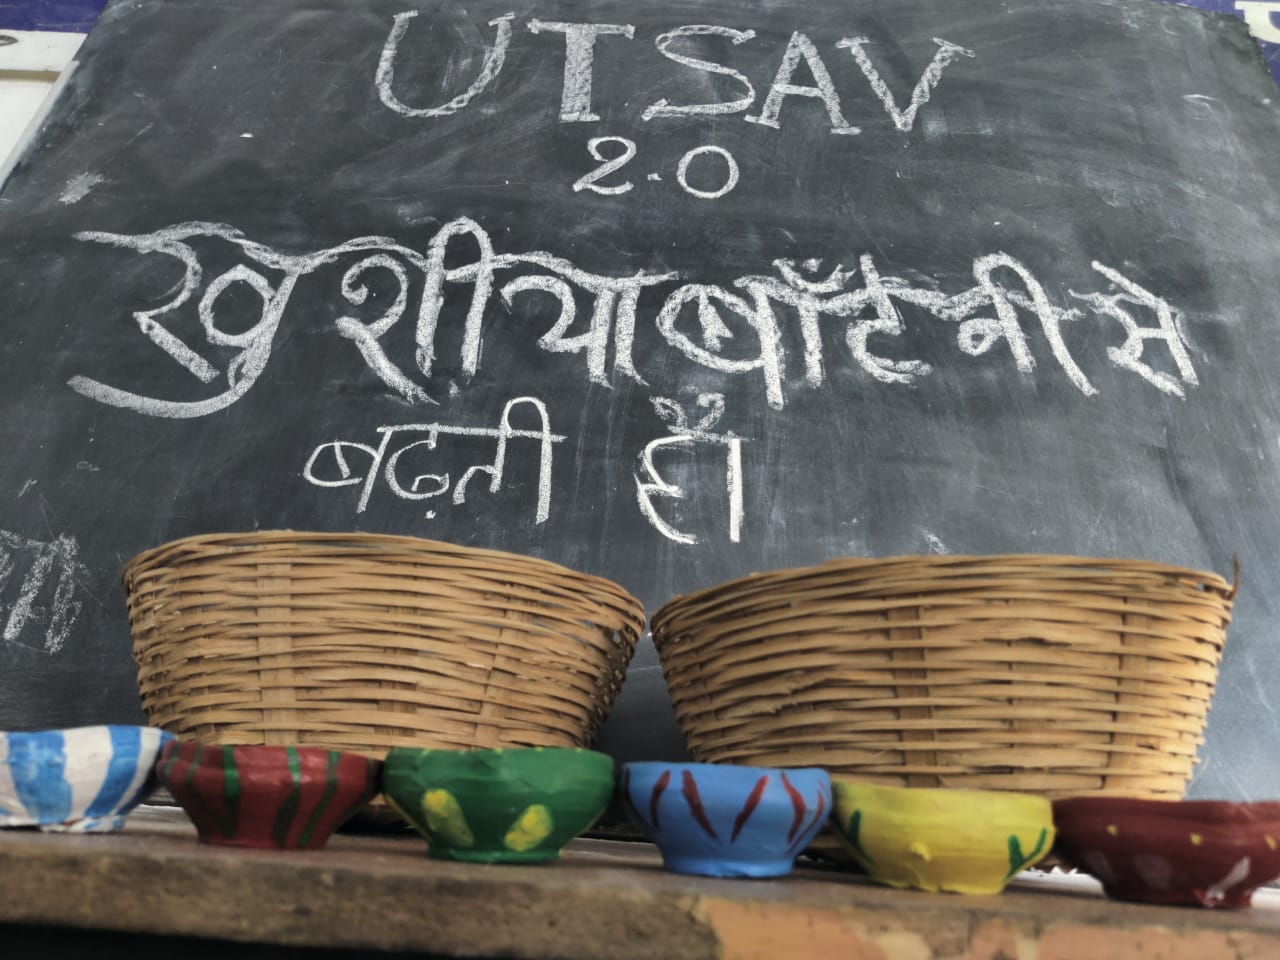 UTSAV
2.0
खुशीया बाँटनी से
बढ़ती हैं।